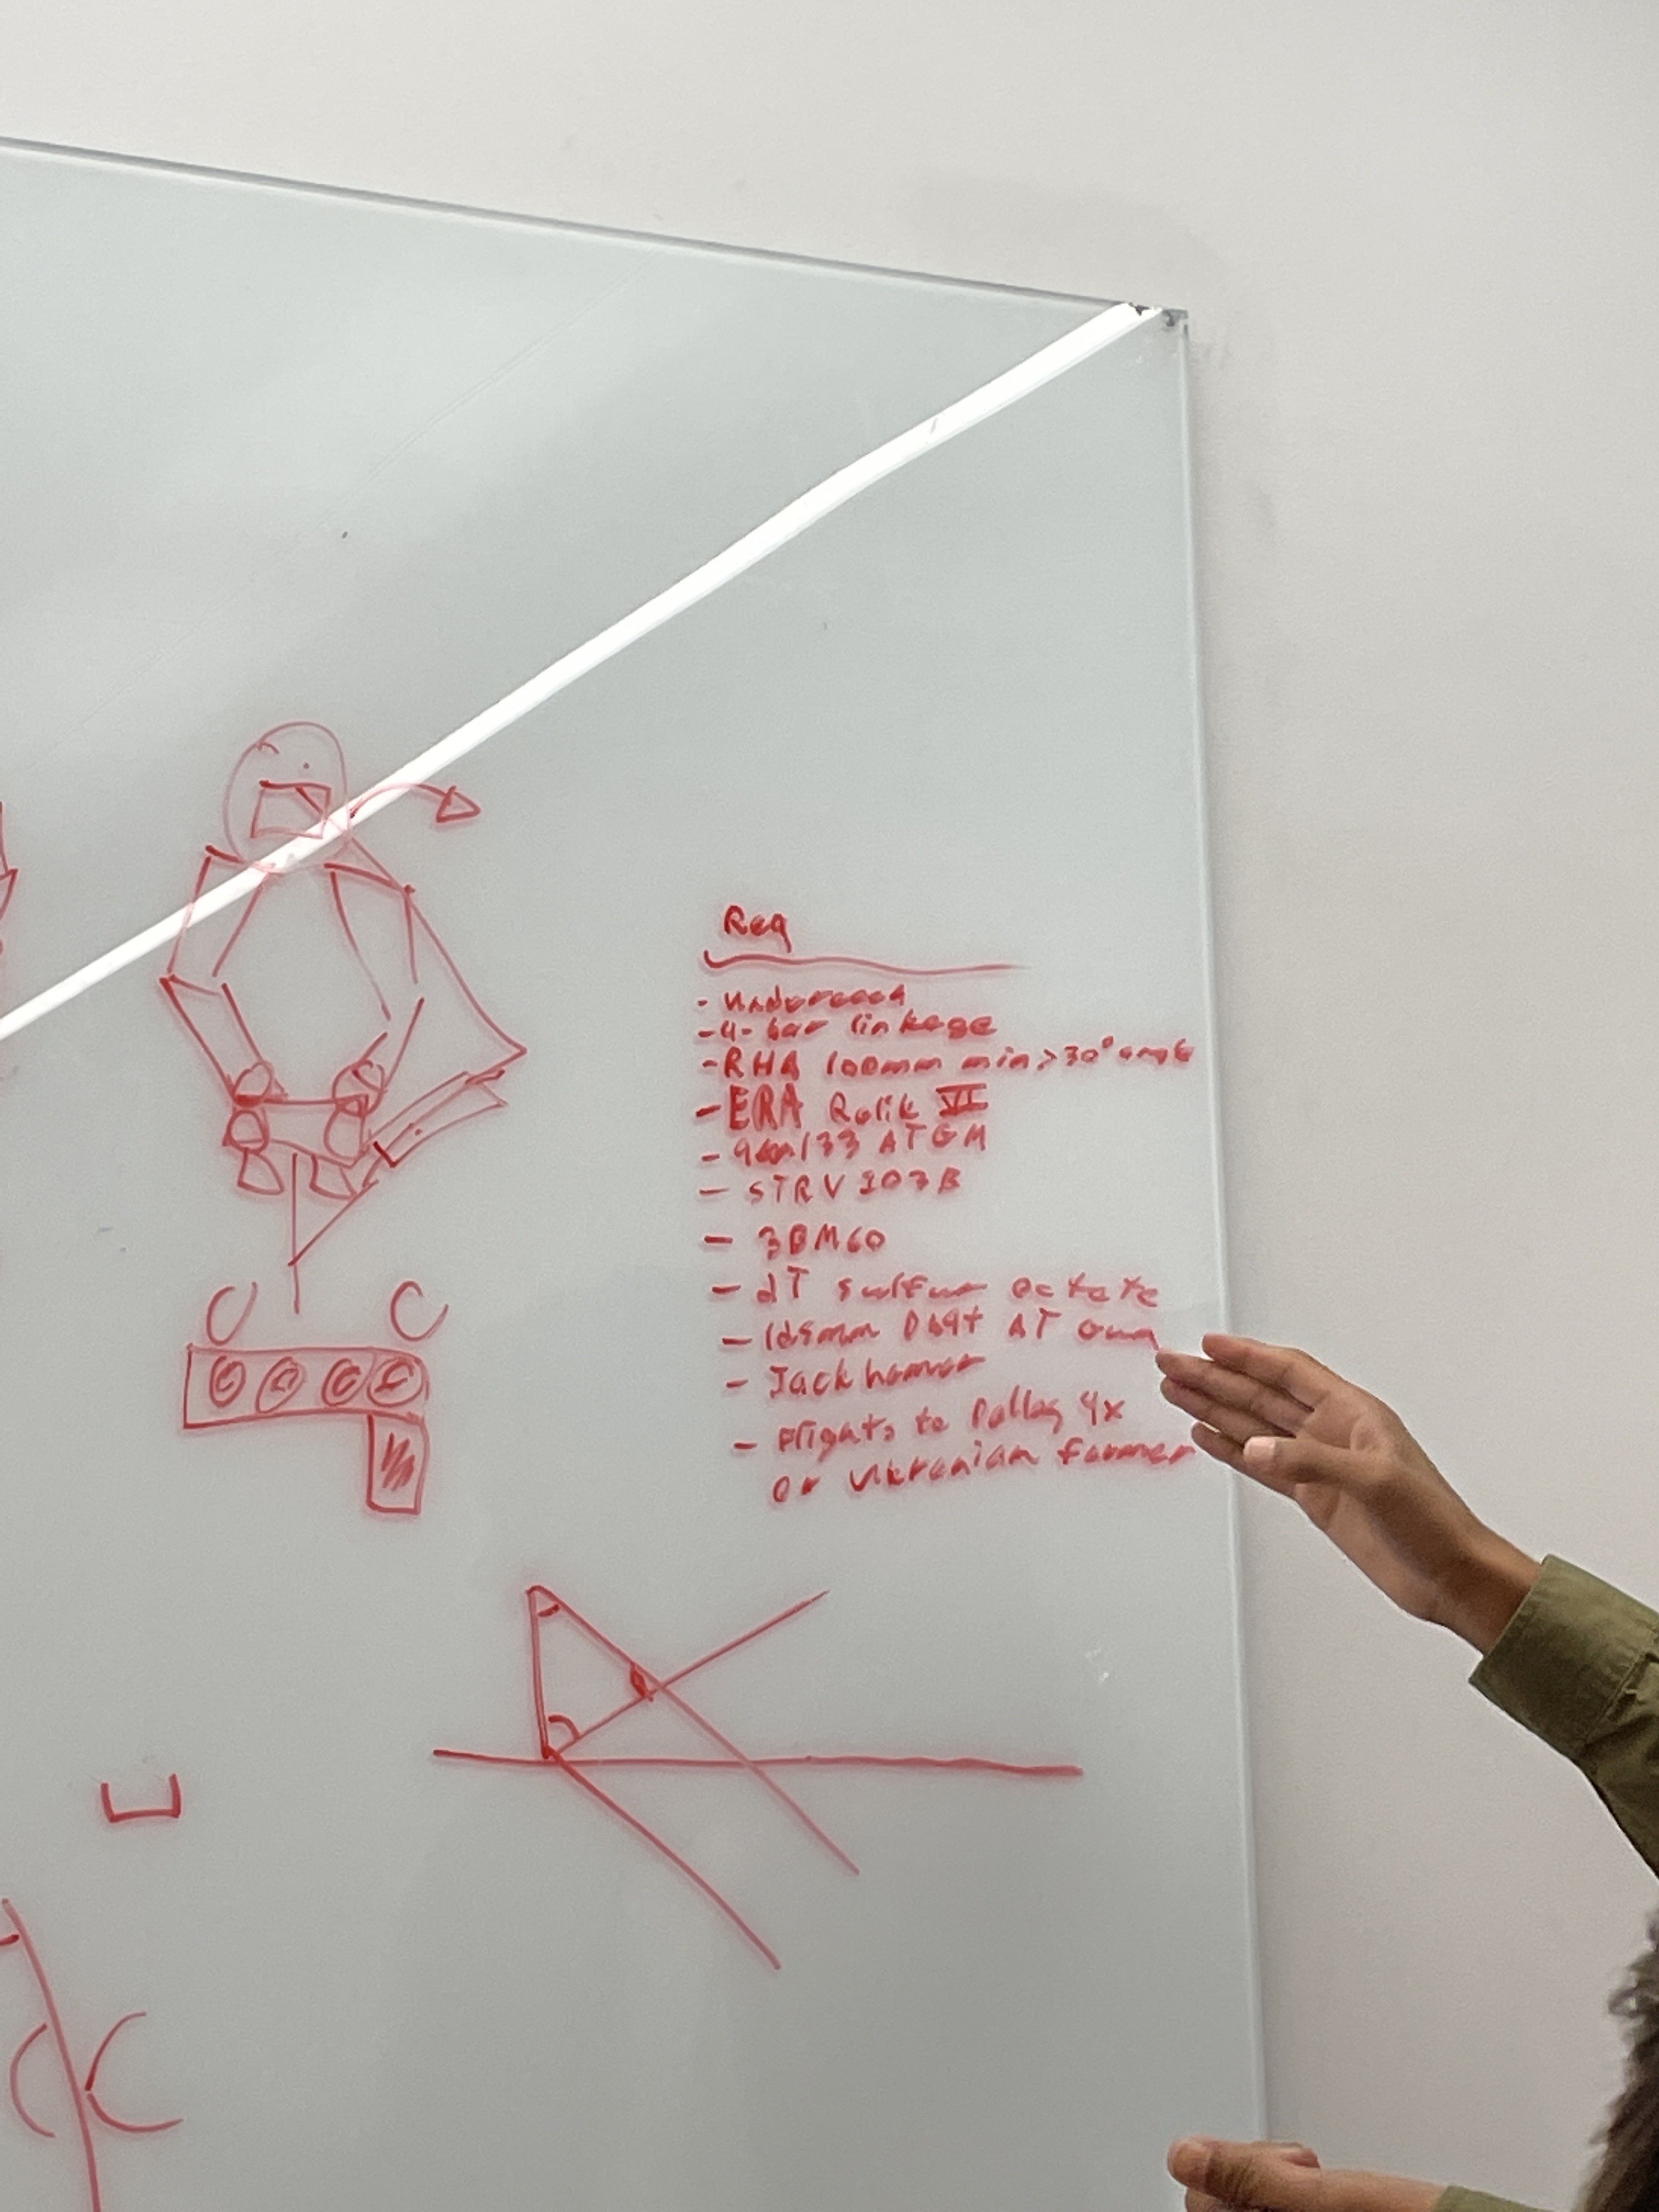 Req
- 4-bar linkage
- RHA 100mm min > 30° angle
- ERA VI
- 9M133 ATGM
- STRV 103B
- 3BM60
- 2T sulfur octate
- 125mm AT Gun
- Jackhamer
- Flights to Dallas 4x
or Ukranian farmer